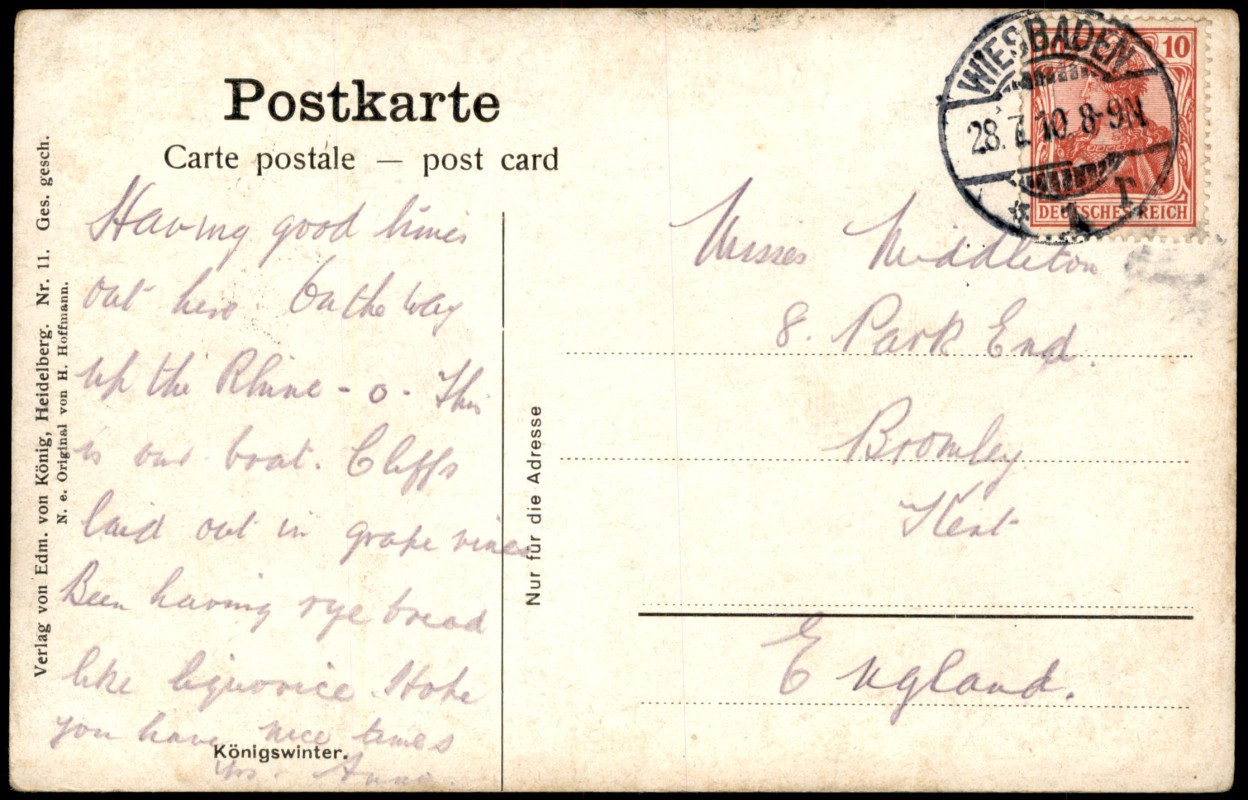 Postkarte
Carte postale — post card
Verlag von Edm. von König, Heidelberg. Nr. 11. Ges. gesch.
N. e. Original von H. Hoffmann.
Having good times
out here. On the way
up the Rhine - o - This
is our boat. Cliffs
laid out in grape vines
Been having rye bread
like liquorice. Hope
you have nice times
Königswinter.
Nur für die Adresse
WIESBADEN
28. 7. 10. 8-9N
* 1
10
DEUTSCHES REICH
Misses Middleton
8. Park End.
Bromley
Kent
England.